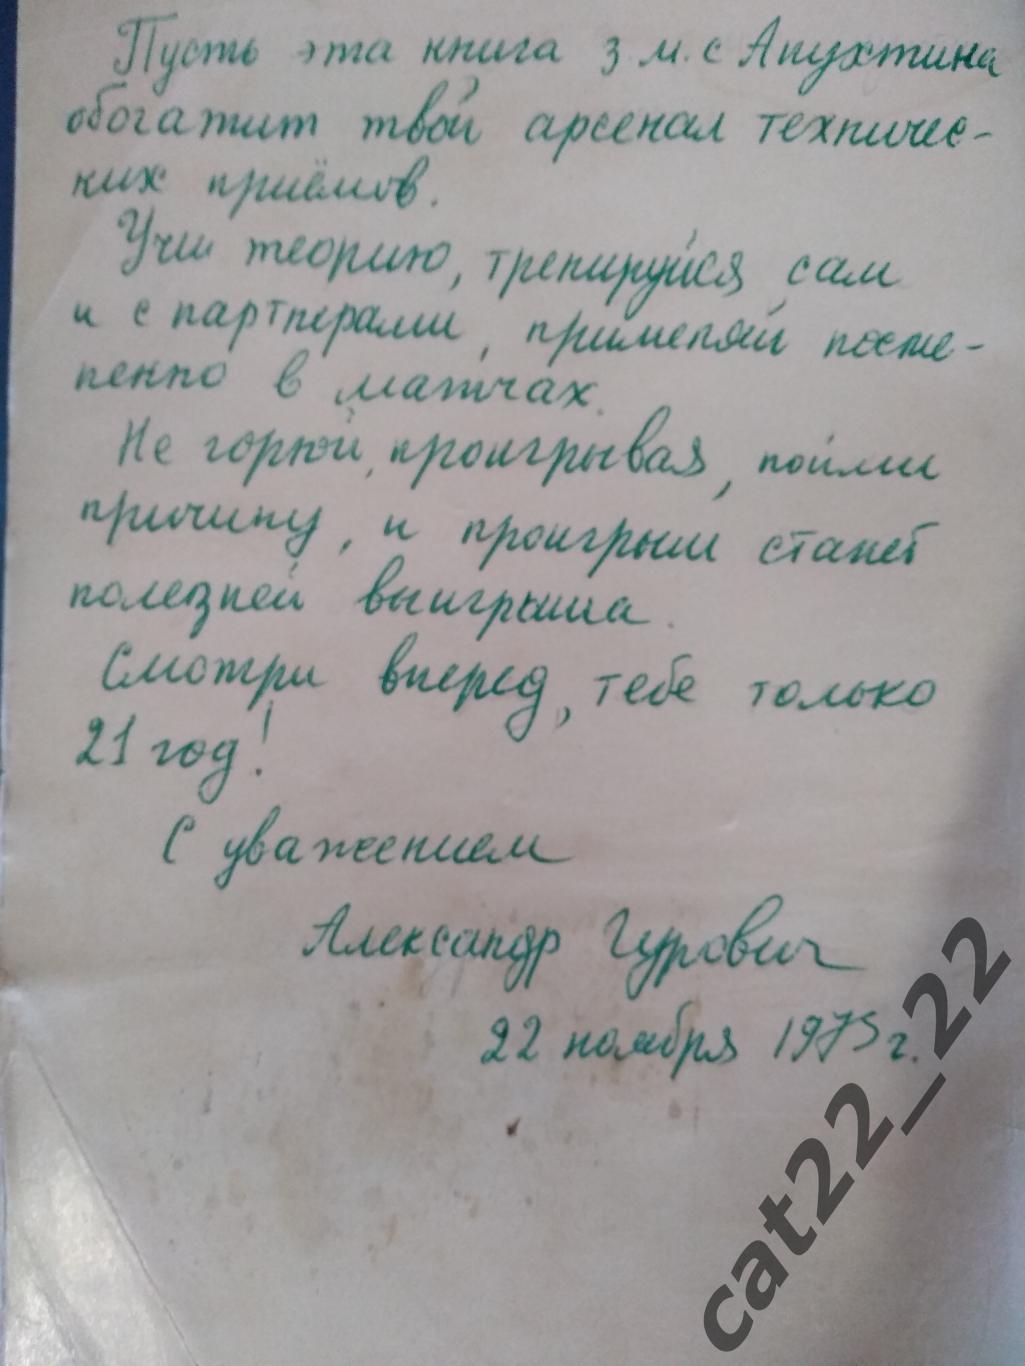 Пусть эта книга з.м.с Апухтина
обогатит твой арсенал техничес-
ких приёмов.
Учи теорию, тренируйся сам
и с партнерами, применяй посте-
пенно в матчах.
Не горюй, проигрывая, пойми
причину, и проигрыш станет
полезней выигрыша.
Смотри вперед, тебе только
21 год!
С уважением
Александр Гурович
22 ноября 1975 г.
cat22_22